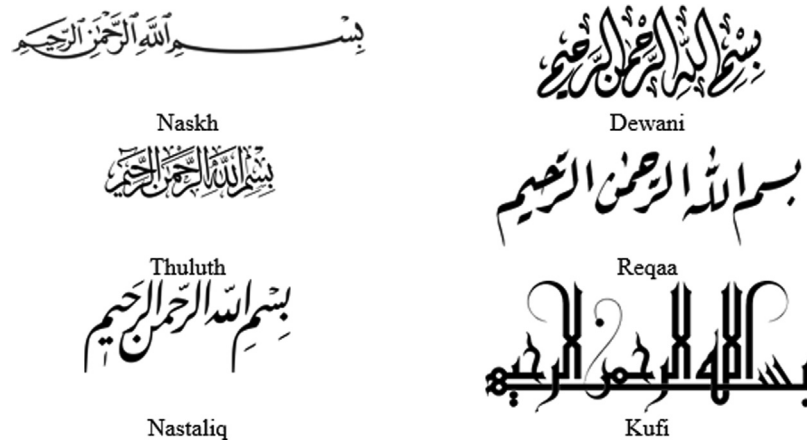 بِسْمِ اللَّهِ الرَّحْمَٰنِ الرَّحِيمِ
Naskh
بِسْمِ اللَّهِ الرَّحْمَٰنِ الرَّحِيمِ
Dewani
بِسْمِ اللَّهِ الرَّحْمَٰنِ الرَّحِيمِ
Thuluth
بسم الله الرحمٰن الرّحيم
Reqaa
بِسْمِ اللّه الرّحمن الرَحيمِ
Nastaliq
بسم الله الرحمن الرحيم
Kufi